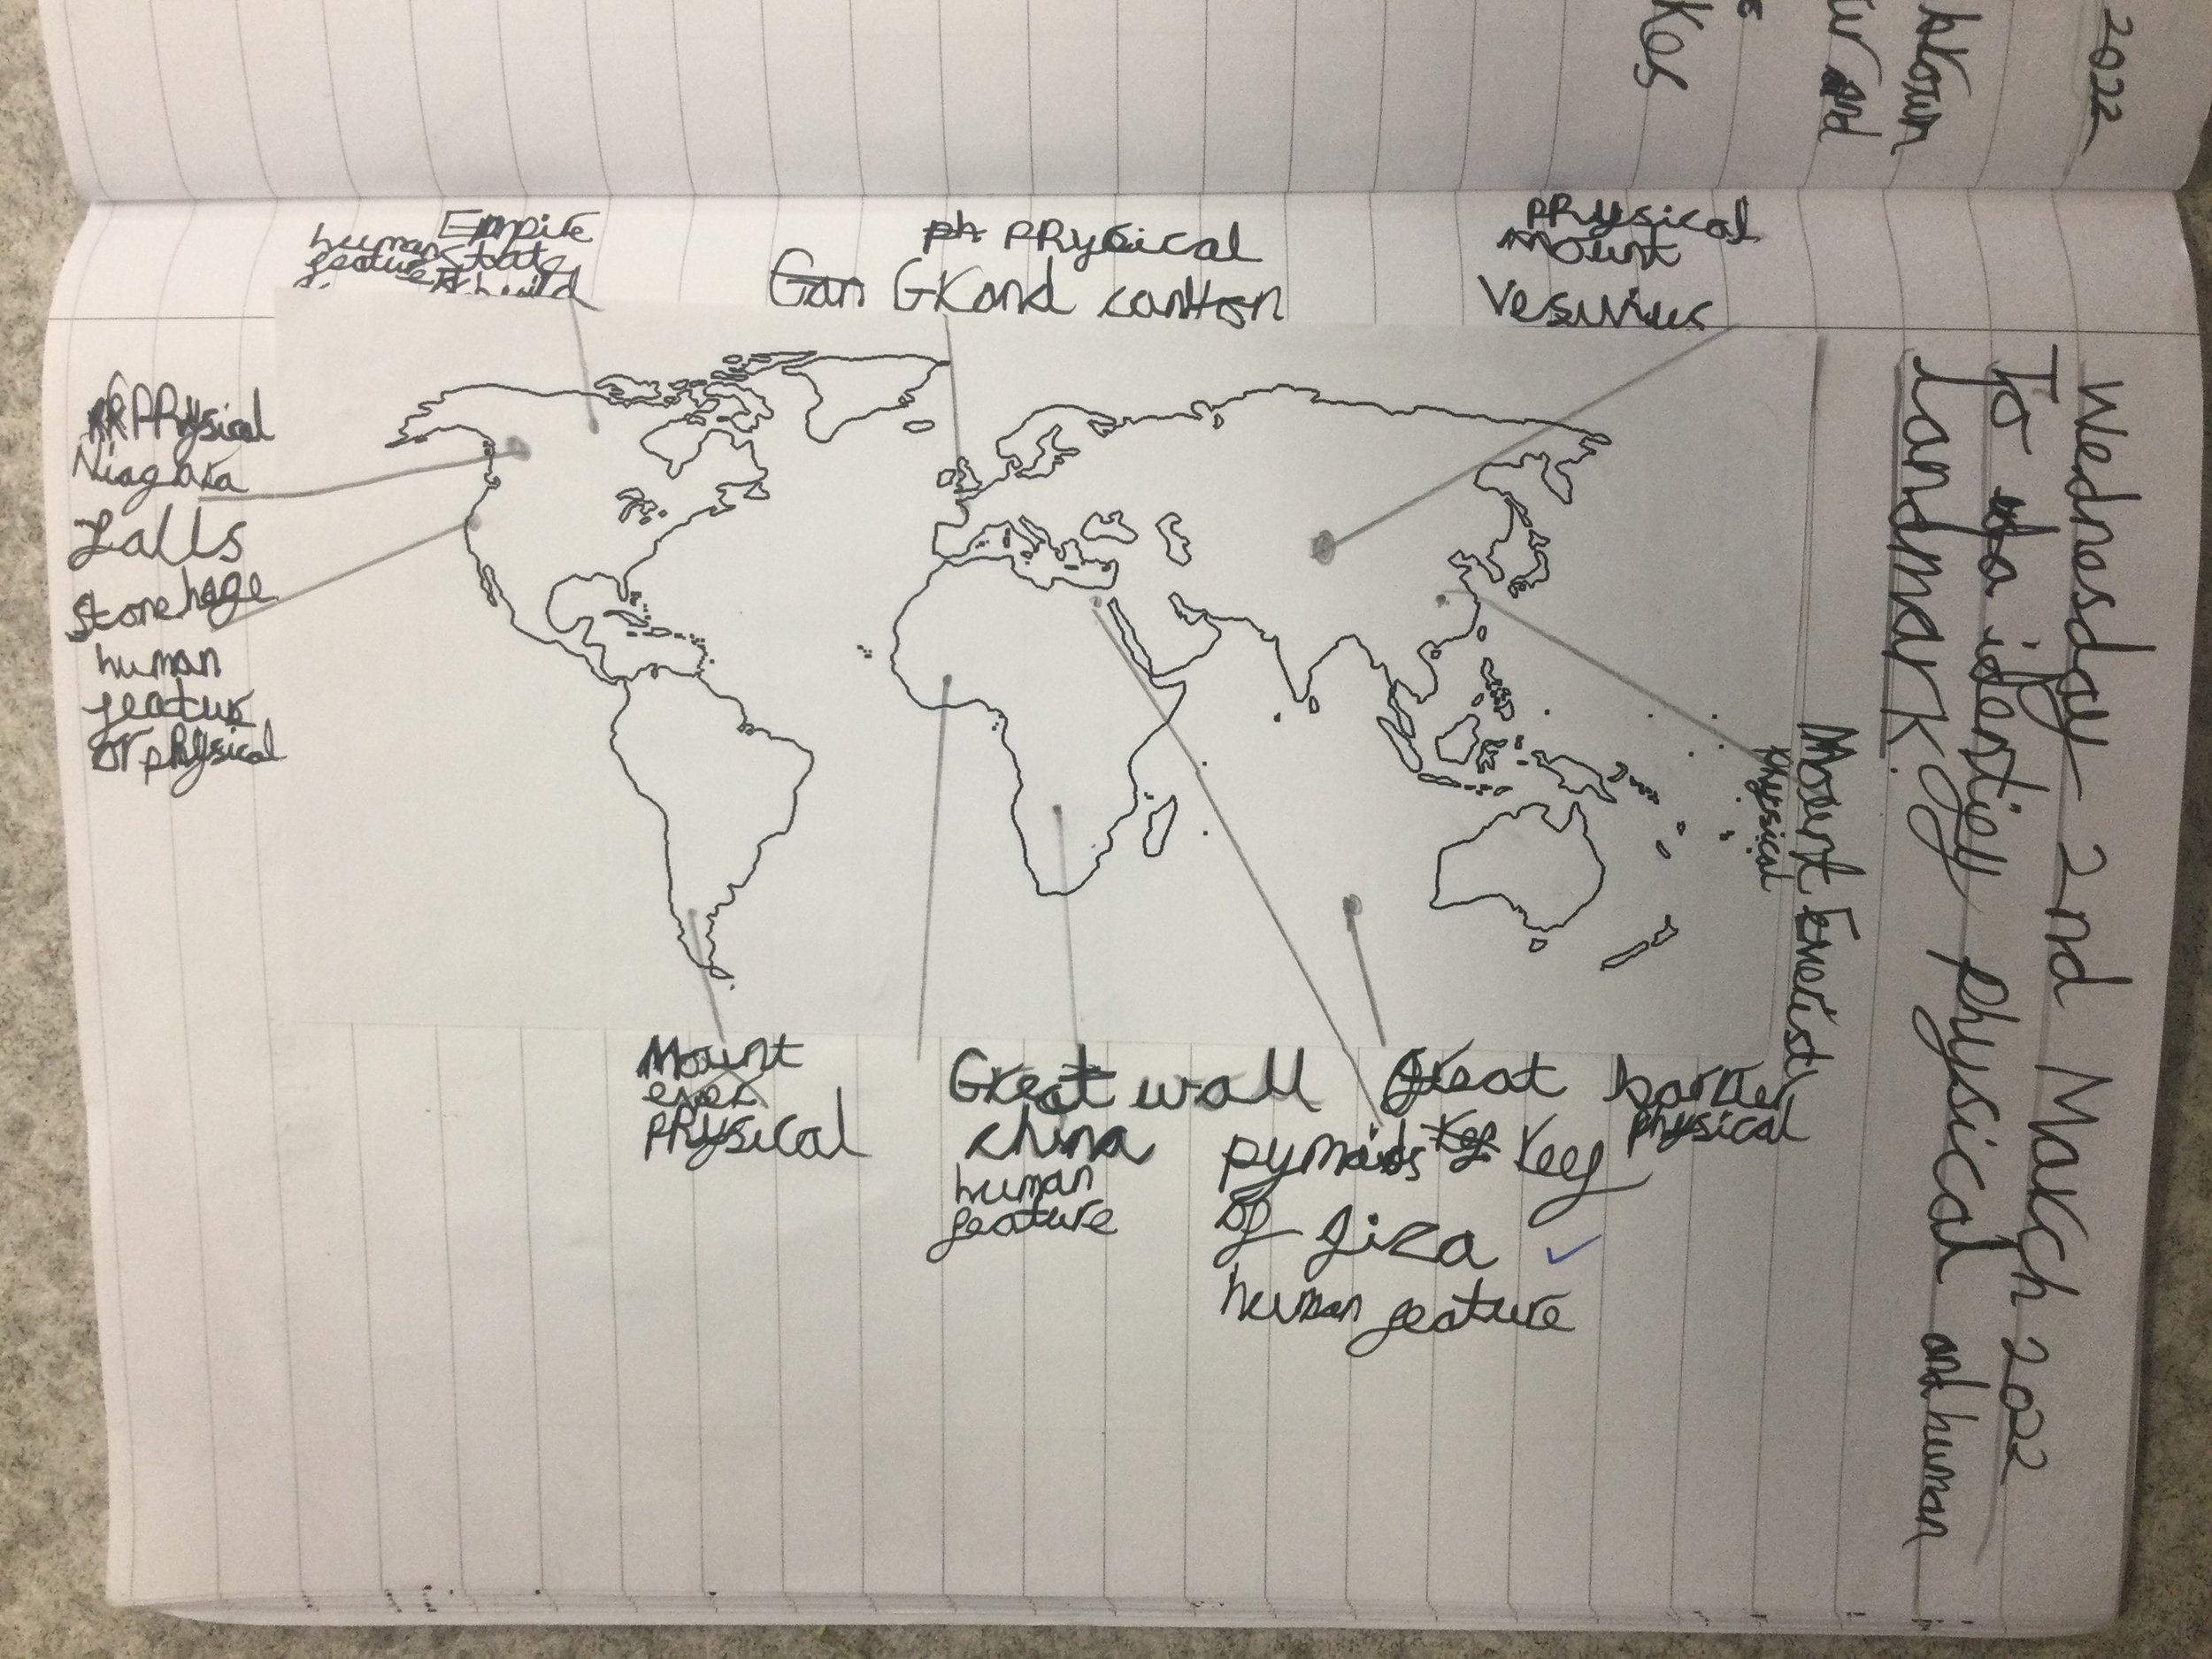 2022
known
ur and
kes
Wednesday 2nd March 2022
To identify physical and human
landmark.
Empire
human State
feature build
ph physical
Gan Grand canton
physical
mount
Vesuvius
physical
Niagara
falls
stonehage
human
featur
or physical
Mount Everist
physical
Mount
ever
physical
Great wall
china
human
feature
great barrier
physical
reef
pymaids
of giza
human feature